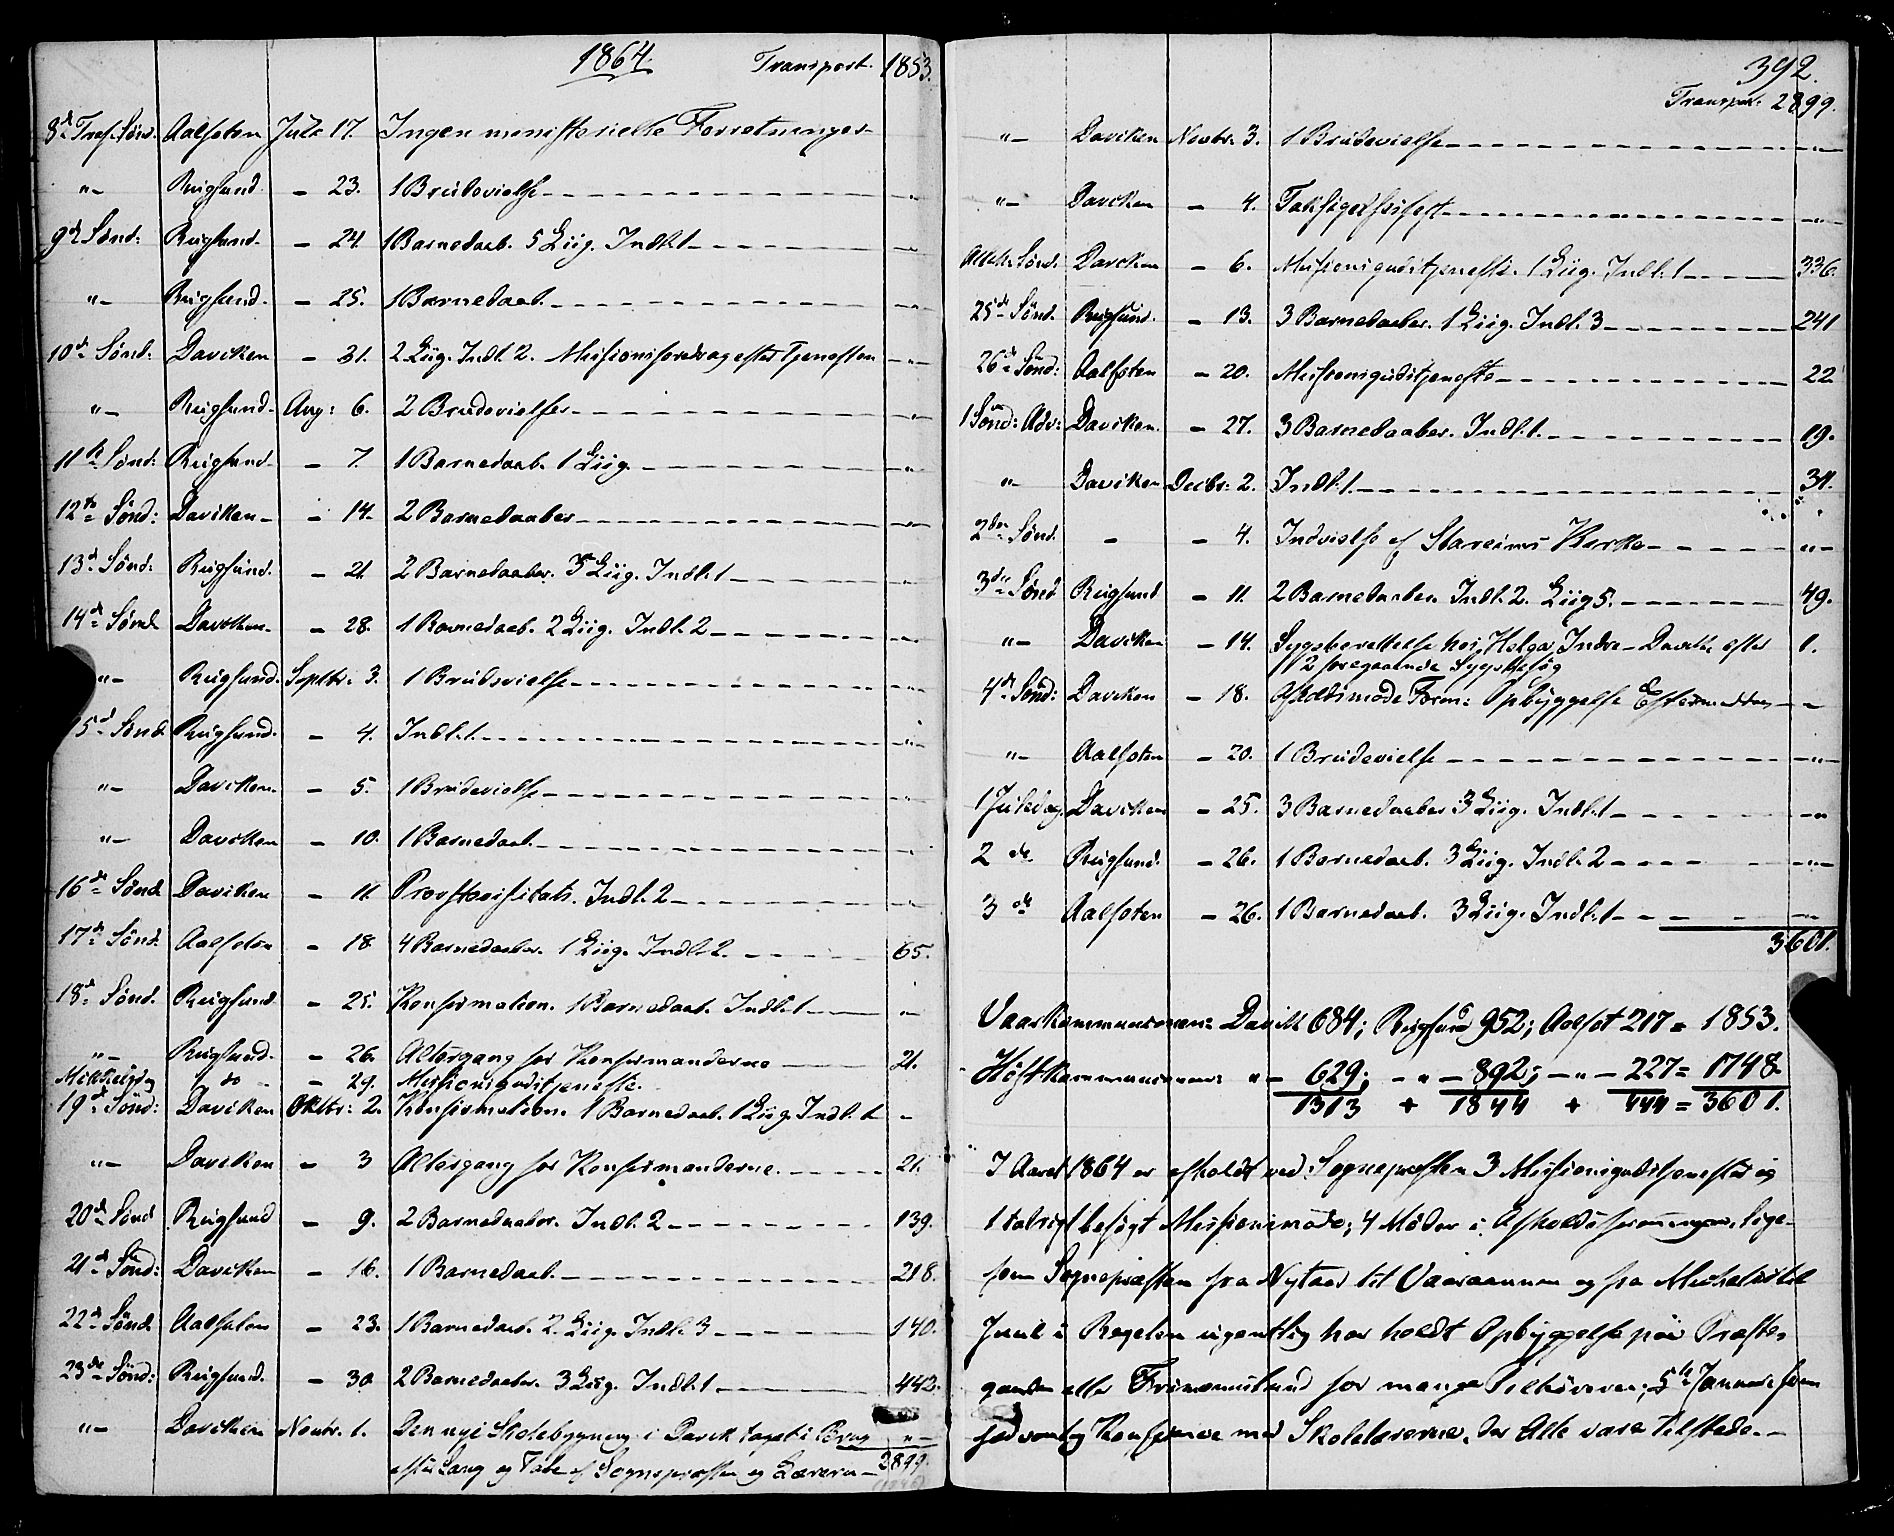 1864. Transport. 1853.
8d Tref. Sønd. Aalfoten Juli 17. Ingen ministerielle Forretninger-
"- Rugsund - 23. 1 Brudevielse - "
9d Sønd: Rugsund. - 24. 1 Barnedaab. 5 Liig. Indl. 1 - "
"- Rugsund. - 25. 1 Barnedaab. - "
10de Sønd: Daviken - 31. 2 Liig. Indl. 2. Missionsforedrag efter Tjenesten - "
"- Rugsund. Aug: 6. 2 Brudevielser. - "
11te Sønd: Rugsund. - 7. 1 Barnedaab. 1 Liig. - "
12te Sønd: Daviken - - 14. 2 Barnedaaber - "
13d Sønd: Rugsund. - 21. 2 Barnedaaber. 3 Liig. Indl. 1 - "
14de Sønd. Daviken. - 28. 1 Barnedaab. 2 Liig. Indl. 2 - "
"- Rugsund. Septbr. 3. 1 Brudevielse - "
15d Sønd. Rugsund. - 4. Indl. 1. - "
"- Daviken. - 5. 1 Brudevielse - "
"- Daviken - 10. 1 Barnedaab. - "
16de Sønd. Daviken - 11. Provstevisitats. Indl. 2 - "
17de Sønd. Aalfoten - 18. 4 Barnedaaber. 1 Liig. Indl. 2. - 65.
18d Sønd. Rugsund - 25. Konfirmation. 1 Barnedaab. Indl. 1 - "
"- Rugsund. - 26. Altergang for Konfirmanderne - 21.
Mikkelsdag do - 29. Missionsgudstjeneste.
19de Sønd: Daviken Oktbr: 2. Konfirmation. 1 Barnedaab. 1 Liig. Indl. 1 -
"- Daviken - 3 Altergang for Konfirmanderne. - 21.
20de Sønd Rugsund - 9. 2 Barnedaaber. Indl. 2 - 139.
21de Sønd: Daviken - 16. 1 Barnedaab. - 218.
22de Sønd. Aalfoten - 23. 1 Barnedaab. 2 Liig. Indl. 3 - 140.
23de Sønd: Rugsund. - 30. 2 Barnedaaber. 3 Liig. Indl. 1 - 442.
"- Daviken Novbr. 1. Den nye Skolebygning i Davik taget i Brug "-
efter Sang og Tale af Sognepresten og Læreren - 2899.
392.
Transport. 2899.
"- Daviken Novbr. 3. 1 Brudevielse - "-
"- Daviken - 4. Taksigelsesfest - "-
Alleh. Sønd. Daviken - 6. Missionsgudstjeneste. 1 Liig. Indl. 1 - 336.
25de Sønd. Rugsund. - 13. 3 Barnedaaber. 1 Liig. Indl. 3 - 241
26de Sønd: Aalfoten - 20. Missionsgudstjeneste - 22
1 Sønd: Adv: Daviken. - 27. 3 Barnedaaber. Indl. 1. - 19.
"- Daviken Decbr. 2. Indl. 1. - 34.
2den Sønd. - - 4. Indvielse af Stareims Kirke - "-
3die Sønd Rugsund - 11. 2 Barnedaaber Indl. 2. Liig 5. - 49.
"- Daviken - 14. Sygeberettelse hos Helga Indre-Davik efter 1.
2 foregaaende Sygebesøg
4de Sønd: Daviken - 18. Afholdsmøde Form: Opbyggelse Eftermiddag - -
"- Aalfoten - 20. 1 Brudevielse - "-
1 Juledag. Daviken - 25. 3 Barnedaaber 3 Liig. Indl. 1 - "
2 de Rugsund. - 26. 1 Barnedaab. 3 Liig. Indl. 2 - "-
3 de Aalfoten - 26. 1 Barnedaab. 3 Liig. Indl. 1 - "-
3601.
Vaarkommunionen: Davik 684; Rugsund 952; Aalfot 217 = 1853.
Høstkommunionen: " - 629; - " - 892; - " - 227 = 1748
1313 + 1844 + 444 = 3601.
I Aaret 1864 er afholdt ved Sognepresten 3 Missionsgudstjenester og
1 talrigt besøgt Missionsmøde; 4 Møder i Afholdsforeningen, lige-
som Sognepresten fra Nytaar til Vaaraannen og fra Michaeli til
Juul i Regelen ugentlig har holdt Opbyggelse paa Præste-
gaarden eller for mange Tilhørere; 5te Januar
Konference med Skolelærerne, der Alle vare tilstede. -